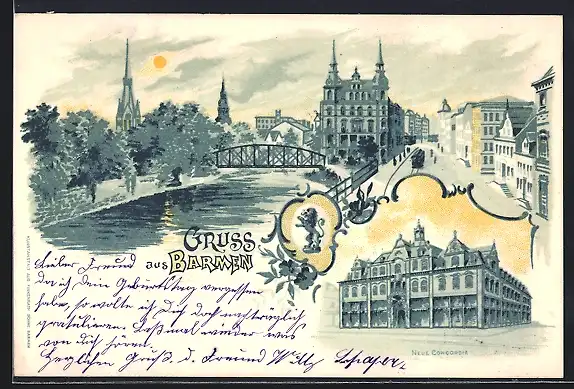 Gruss
aus Barmen
Neue Concordia
Lieber Freund
da ich Dein Geburtstag vergessen
habe, so wollte ich Dir doch nachträglich
gratulieren. Laß mal wieder was
von dir hören.
Herzlichen Gruß d. Freund Willy